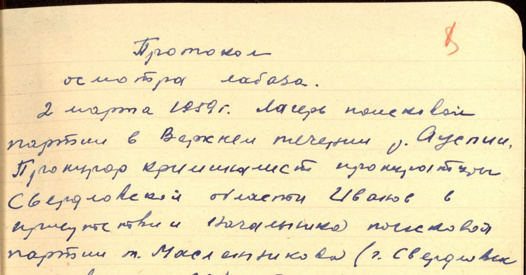 Протокол
осмотра лабаза.
2 марта 1959г. Лагерь поисковой
партии в Верхнем течении р. Ауспии.
Прокурор криминалист прокуратуры
Свердловской области Иванов в
присутствии начальника поисковой
партии т. Масленникова (г. Свердловск